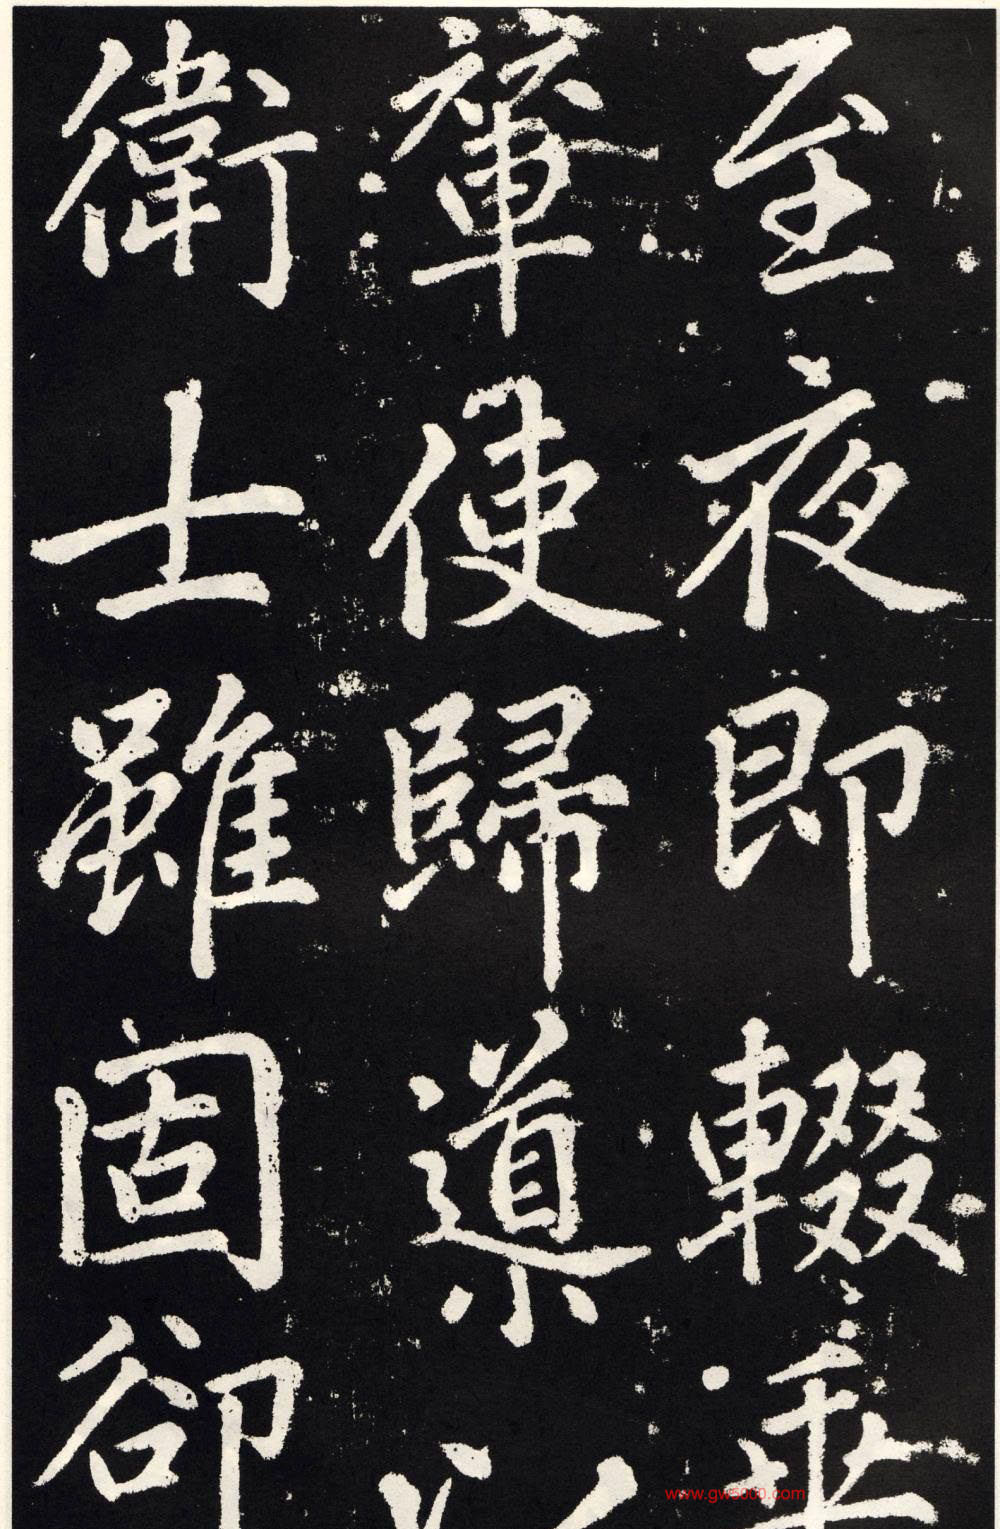 至夜即輟乘
輦使歸導
衛士雖固卻
www.gw5000.com